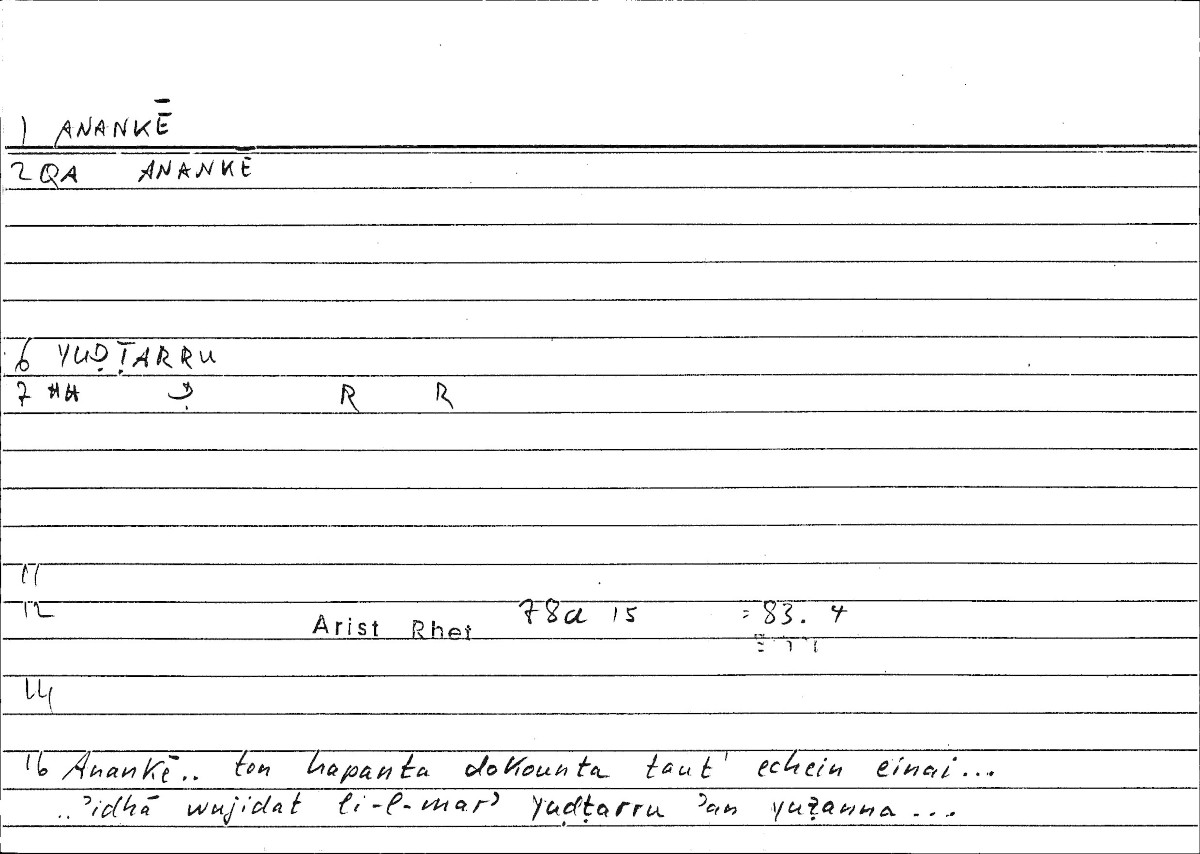 1 ANANKĒ
2 QA ANANKĒ
6 YUḌṬARRU
7 ** Ḍ R R
11
12 Arist Rhet 78a 15 = 83. 4
14
16 Anankē.. ton hapanta dokounta taut' echein einai...
..ʾidhā wujidat li-l-marʾ yuḍṭarru ʾan yuẓanna...